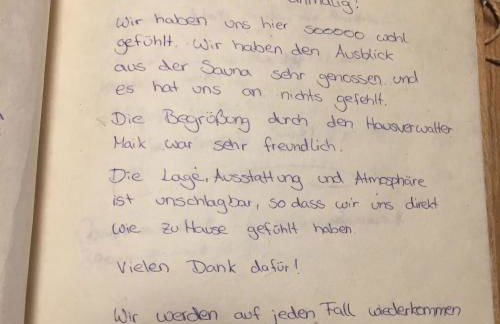 einmalig!
Wir haben uns hier sooooo wohl
gefühlt. Wir haben den Ausblick
aus der Sauna sehr genossen und
es hat uns an nichts gefehlt.
Die Begrüßung durch den Hausverwalter
Maik war sehr freundlich.
Die Lage, Ausstattung und Atmosphäre
ist unschlagbar, so dass wir uns direkt
wie zu Hause gefühlt haben
Vielen Dank dafür!
Wir werden auf jeden Fall wiederkommen